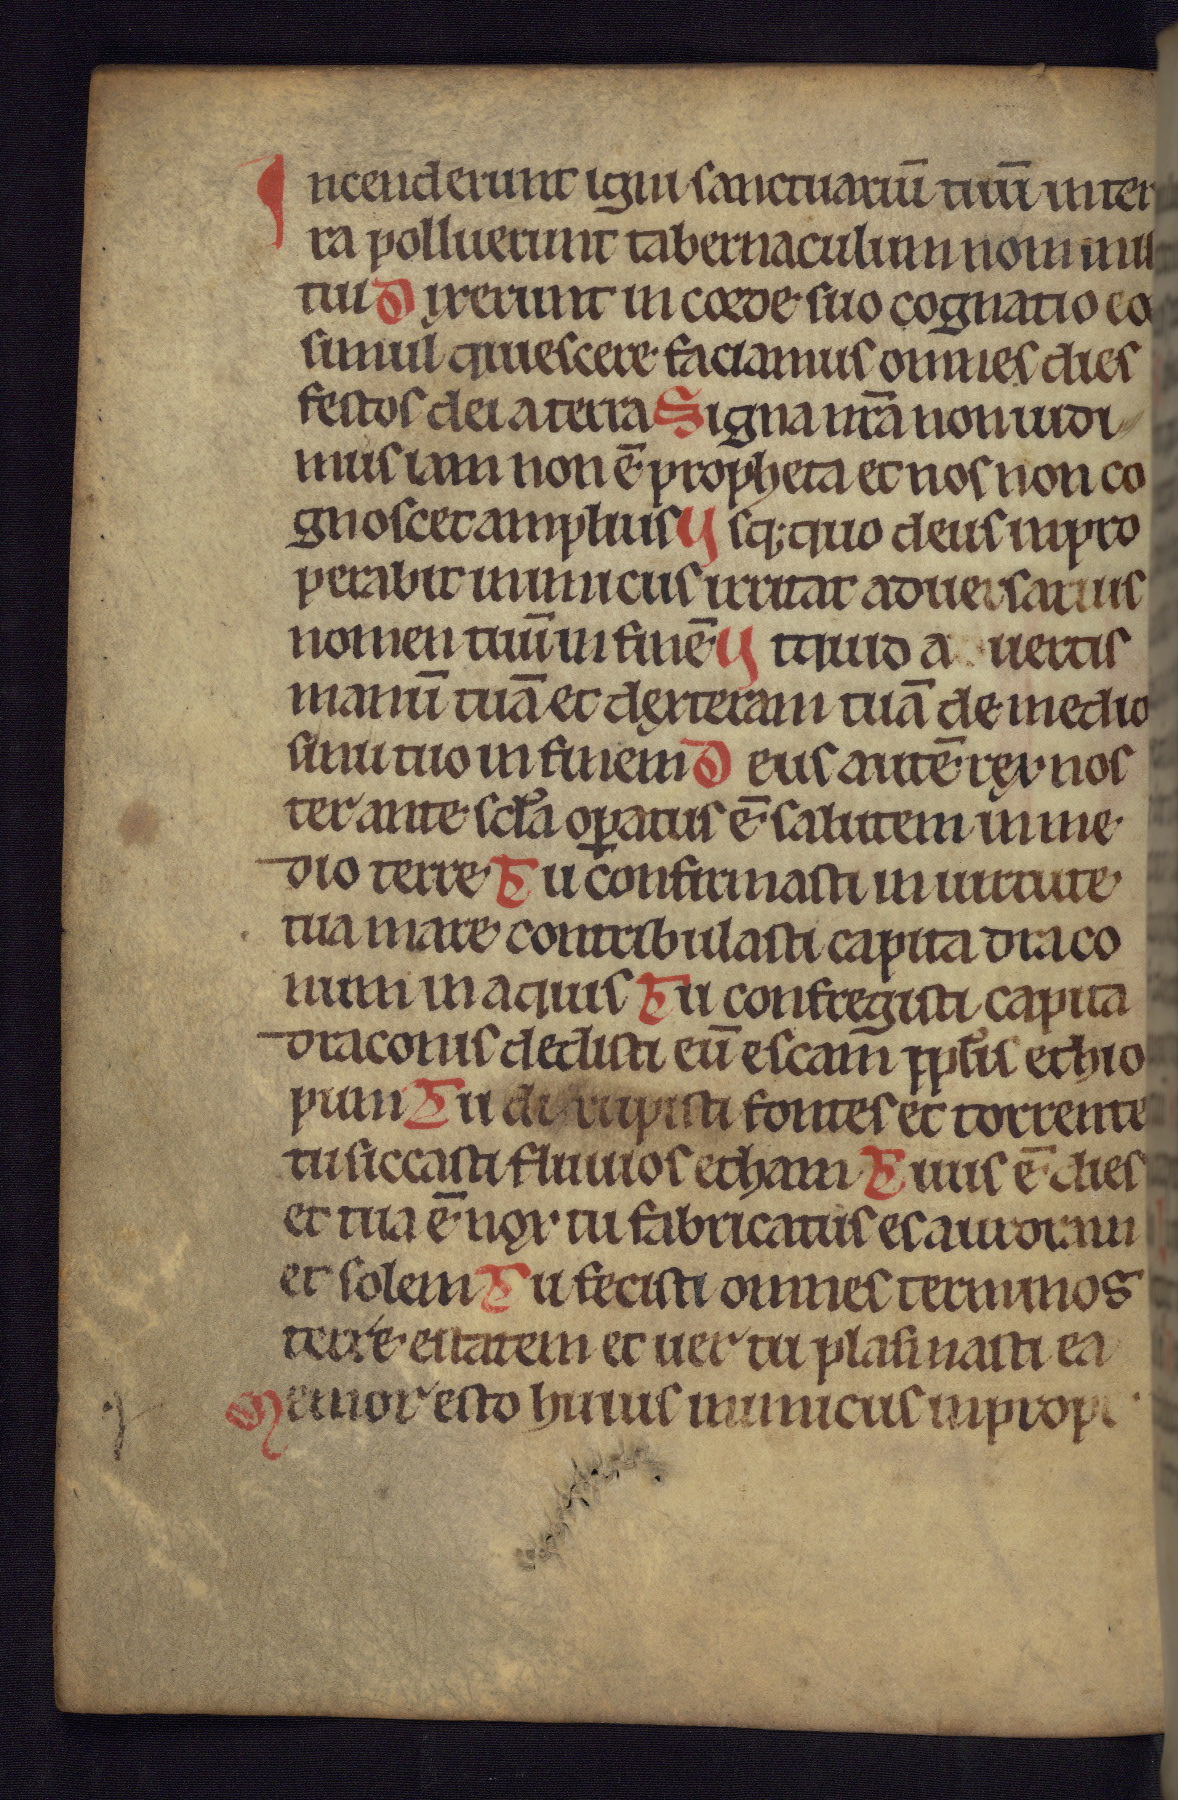 Incenderunt igni sanctuariū tuū in ter
ra polluerunt tabernaculum nominis
tui Dixerunt in corde suo cognatio eo
simul quiescere faciamus omnes dies
festos dei a terra Signa nr̄a non uidi
mus iam non ē propheta et nos non co
gnoscet amplius Vsq; quo deus inpro
perabit inimicus irritat aduersarius
nomen tuū in finē Vt quid auertis
manū tuā et dexteram tuā de medio
sinu tuo in finem Deus autē rex nos
ter ante scl̄a oꝑatus ē salutem in me
dio terre Tu confirmasti in uirtute
tua mare contribulasti capita draco
num in aquis Tu confregisti capita
draconis dedisti eū escam ppl̄is ethio
pum Tu dirupisti fontes et torrente
tu siccasti fluuios etham Tuus ē dies
et tua ē nox tu fabricatus es auroram
et solem Tu fecisti omnes terminos
terre estatem et uer tu plasmasti ea
Memor esto huius inimicus inprope